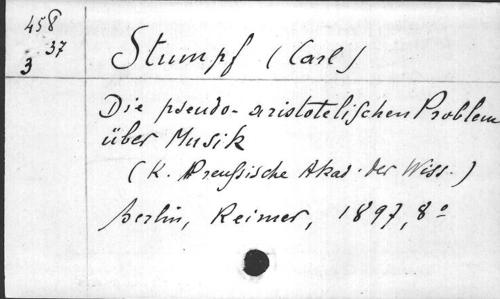 458
37
3
Stumpf (Carl)
Die pseudo-aristotelischen Probleme
über Musik
(K. Preußische Akad. der Wiss.)
Berlin, Reimer, 1897, 8°